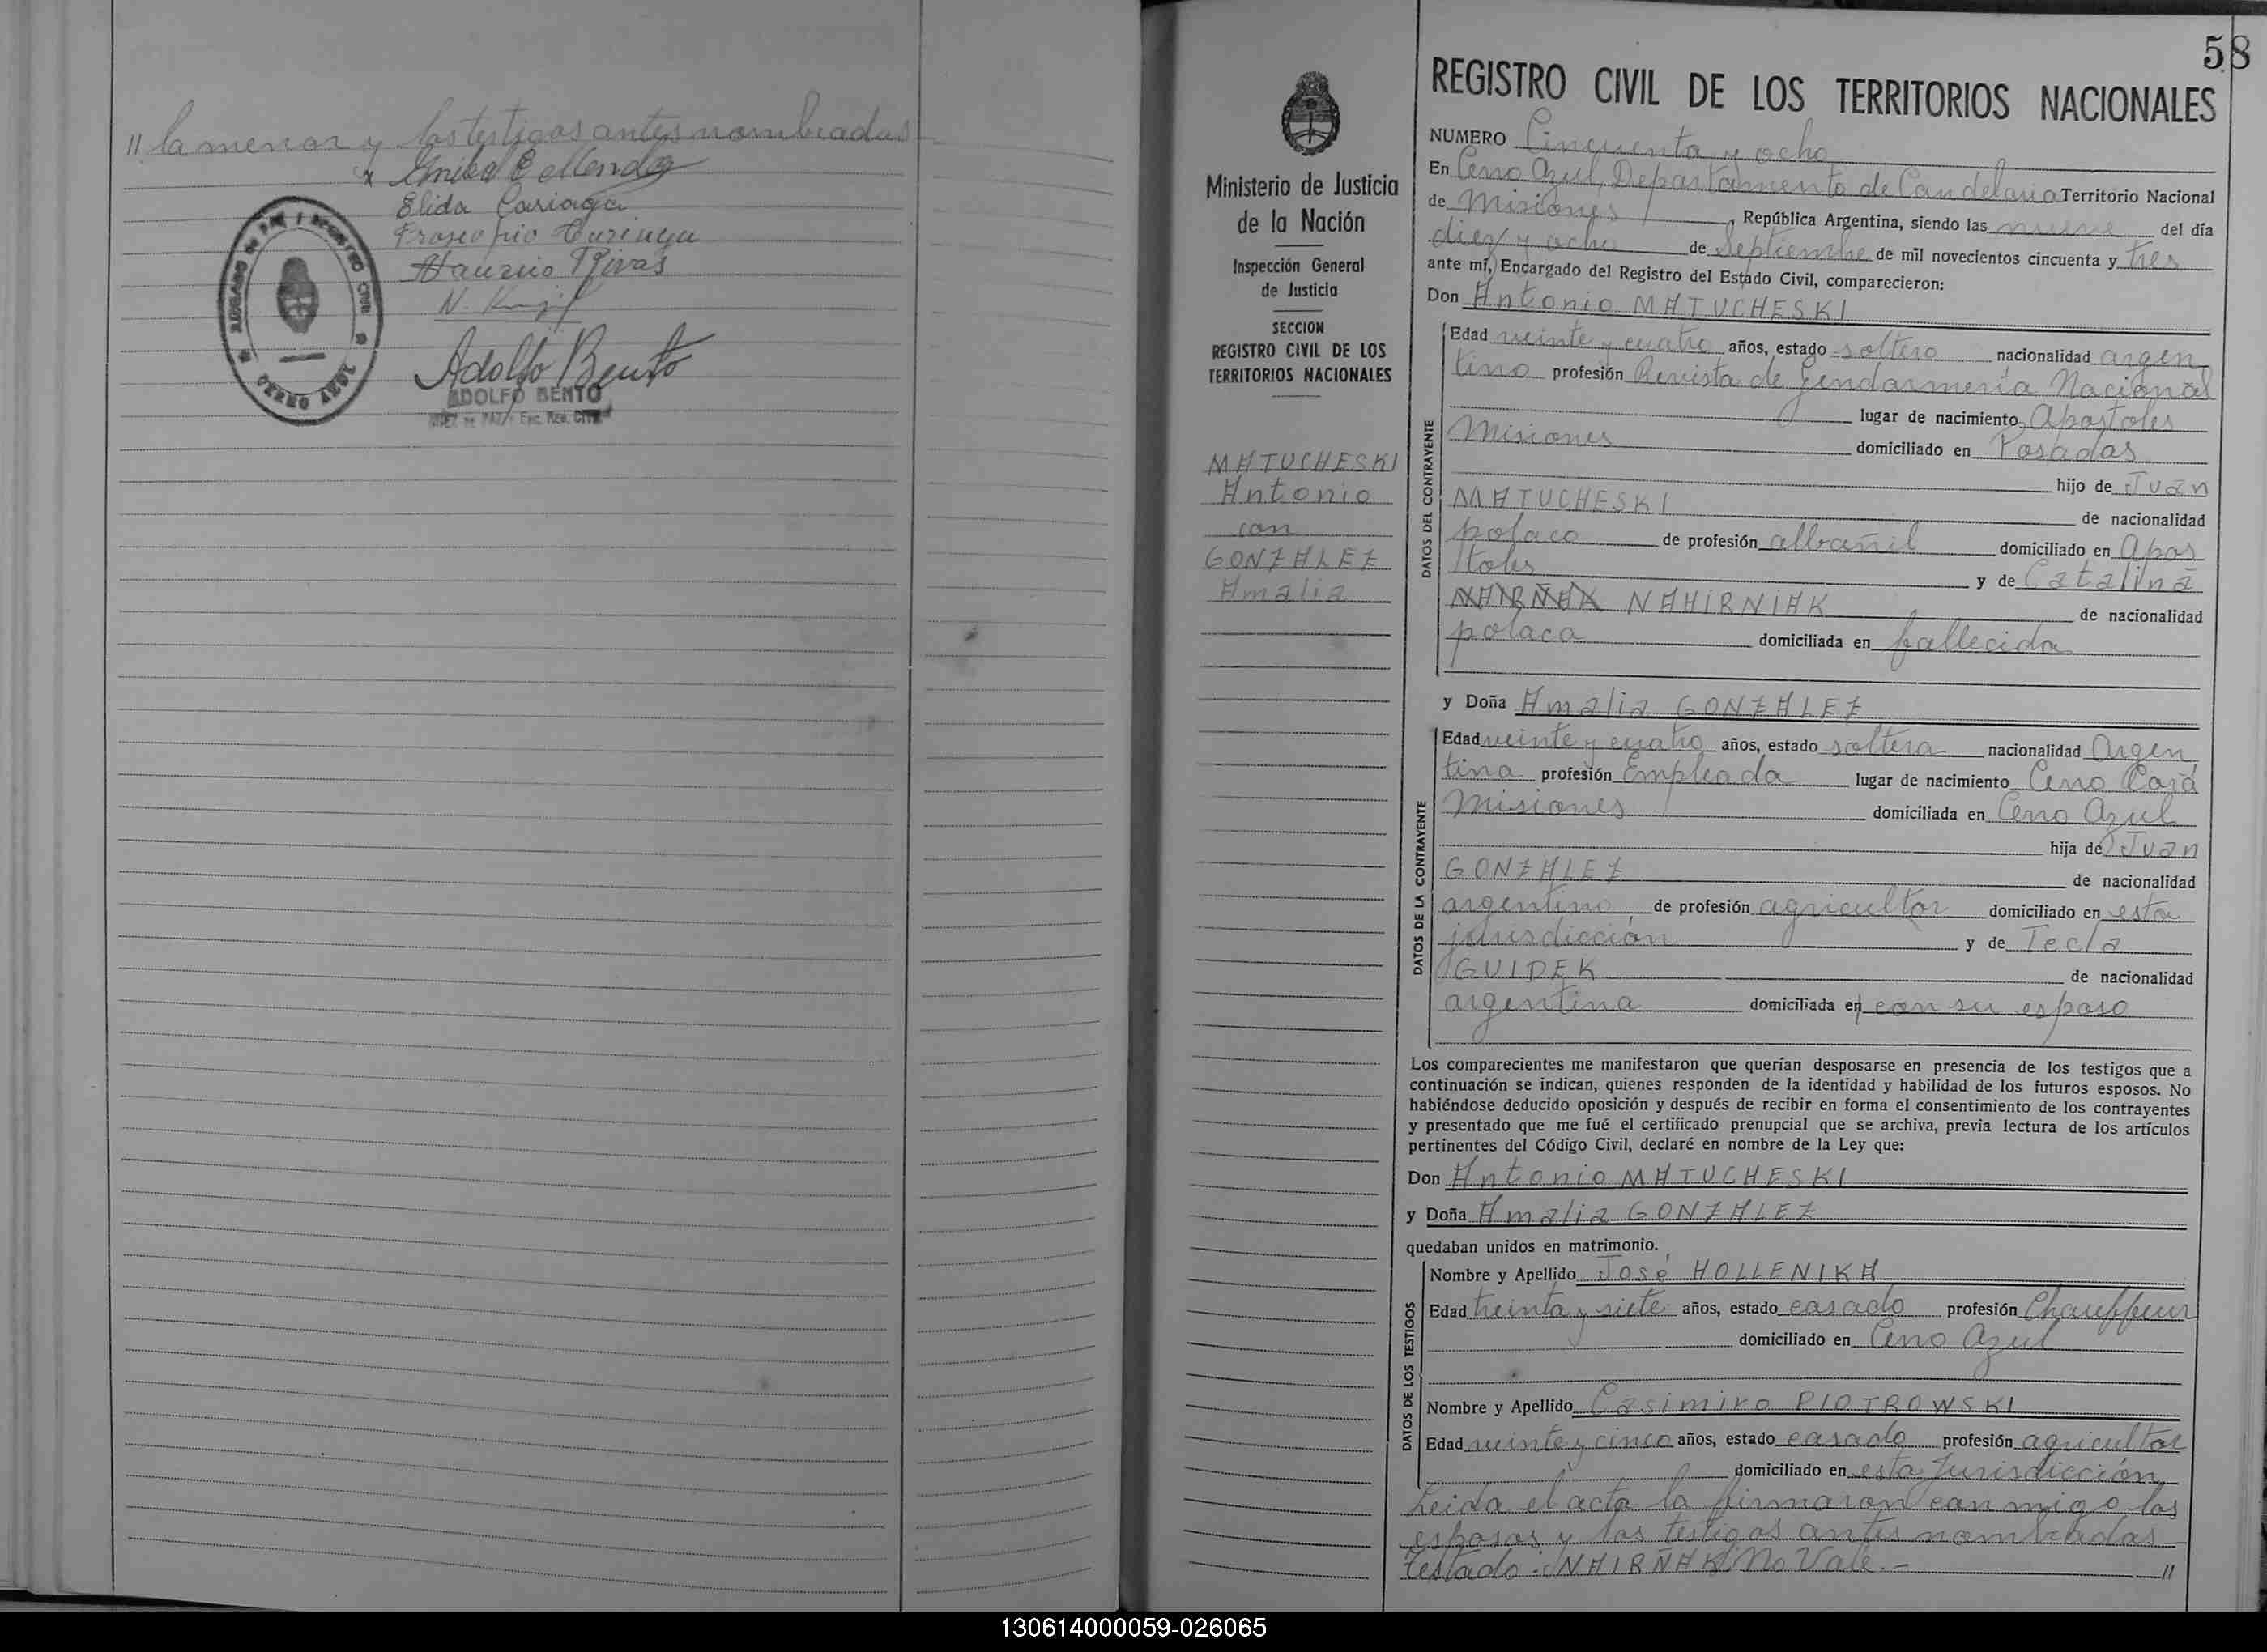 " la menor y los testigos antes nombrados
x Emilio E Mendez
Elida Cariaga
Mauricio Rivas
Adolfo Bento
ADOLFO BENTO
JUEZ DE PAZ y Enc. Reg. CIVIL
JUZGADO DE PAZ Y REGISTRO CIVIL
CERRO AZUL
58
REGISTRO CIVIL DE LOS TERRITORIOS NACIONALES
Ministerio de Justicia
de la Nación
Inspección General
de Justicia
SECCION
REGISTRO CIVIL DE LOS
TERRITORIOS NACIONALES
MATUCHESKI
Antonio
con
GONZALEZ
Amalia
NUMERO Cincuenta y ocho
En Cerro Azul, Departamento de Candelaria Territorio Nacional
de Misiones, República Argentina, siendo las nueve del día
diez y ocho de Septiembre de mil novecientos cincuenta y tres
ante mí, Encargado del Registro del Estado Civil, comparecieron:
Don Antonio MATUCHESKI
DATOS DEL CONTRAYENTE
Edad veinte y cuatro años, estado soltero nacionalidad argen
tino profesión Revista de Gendarmería Nacional
lugar de nacimiento Apostoles
Misiones domiciliado en Posadas
hijo de Juan
MATUCHESKI de nacionalidad
polaco de profesión albañil domiciliado en Apos
toles y de Catalina
NAIRÑAK NAHIRNIAK de nacionalidad
polaca domiciliada en fallecida
y Doña Amalia GONZALEZ
DATOS DE LA CONTRAYENTE
Edad veinte y cuatro años, estado soltera nacionalidad Argen
tina profesión Empleada lugar de nacimiento Cerro Corá
Misiones domiciliada en Cerro Azul
hija de Juan
GONZALEZ de nacionalidad
argentino de profesión agricultor domiciliado en esta
jurisdicción y de Tecla
GUIDEK de nacionalidad
argentina domiciliada en con su esposo
Los comparecientes me manifestaron que querían desposarse en presencia de los testigos que a
continuación se indican, quienes responden de la identidad y habilidad de los futuros esposos. No
habiéndose deducido oposición y después de recibir en forma el consentimiento de los contrayentes
y presentado que me fué el certificado prenupcial que se archiva, previa lectura de los artículos
pertinentes del Código Civil, declaré en nombre de la Ley que:
Don Antonio MATUCHESKI
y Doña Amalia GONZALEZ
quedaban unidos en matrimonio.
DATOS DE LOS TESTIGOS
Nombre y Apellido José HOLLENIKA
Edad treinta y siete años, estado casado profesión Chauffeur
domiciliado en Cerro Azul
Nombre y Apellido Casimiro PIOTROWSKI
Edad veinte y cinco años, estado casado profesión agricultor
domiciliado en esta Jurisdicción
Leida el acta la firmaron conmigo los
esposos y los testigos antes nombrados
Testado: NAIRÑAK: No Vale.- "
130614000059-026065